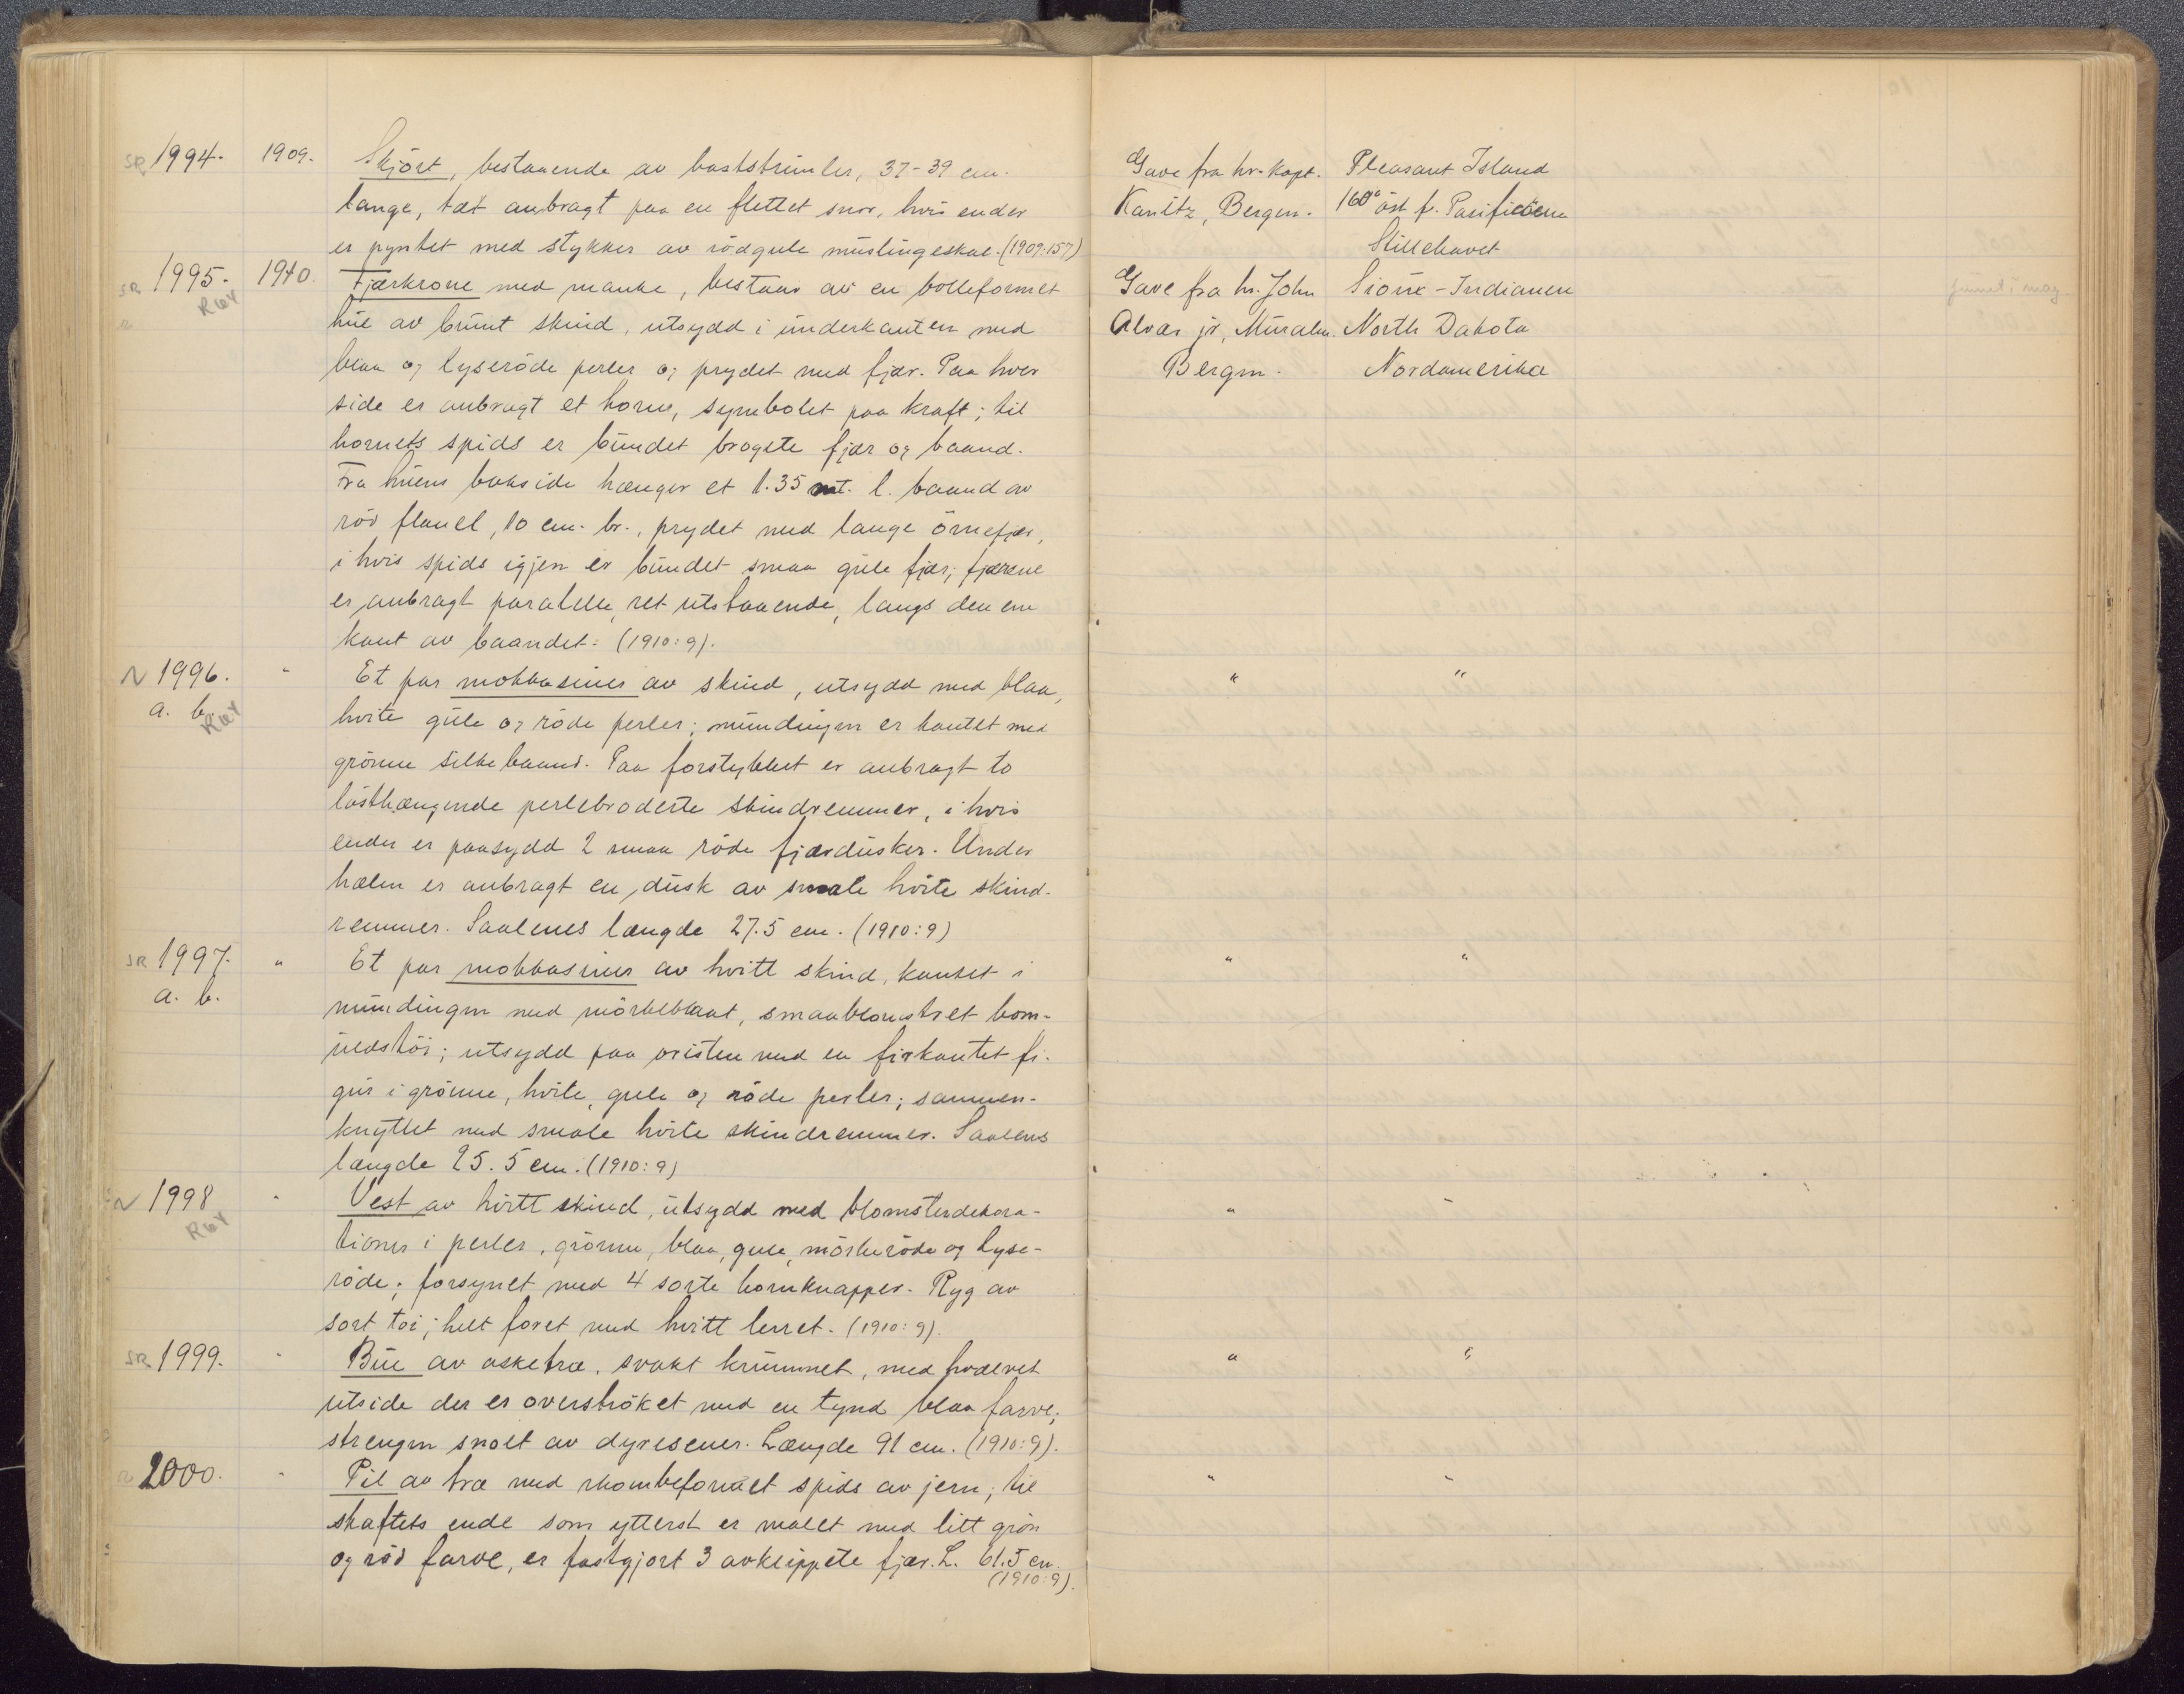 SR 1994. 1909. Skjört, bestaaende av baststrimler, 37-39 cm.
lange, tæt anbragt paa en flettet snor, hvis ender
er pyntet med stykker av rödgule muslingeskal. (1909:157)
Gave fra hr. kapt. Pleasant Island
Kanitz, Bergen. 160° öst f. Pasificöerne
Stillehavet
SR 1995. 1910. Fjærkrone med manke, bestaar av en bolleformet
R64
hue av brunt skind, utsydd i underkanten med
blaa og lyseröde perler og prydet med fjær. Paa hver
side er anbragt et horn, symbolet paa kraft; til
hornets spids er bundet brogete fjær og baand.
Fra huens bakside hænger et 1.35 mt. l. baand av
röd flanel, 10 cm. br., prydet med lange örnefjær,
i hvis spids igjen er bundet smaa gule fjær; fjærene
er anbragt paralelle, ret utstaaende, langs den ene
kant av baandet. (1910:9).
Gave fra hr. John Sioux-Indianere
Alvær jr., North Dakota
Bergen. Nordamerika
funnet i mag.
N 1996. " Et par mokkasiner av skind, utsydd med blaa, " "
a. b. R64
hvite gule og röde perler; mundingen er kantet med
grönne silkebaand. Paa forstykket er anbragt to
lösthængende perlebroderte skindremmer, i hvis
ender er paasydd 2 smaa röde fjærdusker. Under
hælen er anbragt en dusk av smale hvite skind-
remmer. Saalenes længde 27.5 cm. (1910:9)
SR 1997. " Et par mokkasiner av hvitt skind, kantet i " "
a. b.
mundingen med mörkeblaat, smaablomstret bom-
uldstöi; utsydd paa vristen med en firkantet fi-
gur i grönne, hvite, gule og röde perler; sammen-
knyttet med smale hvite skindremmer. Saalens
længde 25.5 cm. (1910:9)
N 1998 " Vest av hvitt skind, utsydd med blomsterdekora- " "
R64
tioner i perler, grönne, blaa, gule, mörkeröde og lyse-
röde; forsynet med 4 sorte hornknapper. Ryg av
sort töi; helt foret med hvitt lerret. (1910:9).
SR 1999. " Bue av asketræ, svakt krummet, med hvælvet " "
utside der er overströket med en tynd blaa farve;
strengen snoet av dyresener. Længde 91 cm. (1910:9).
2000. " Pil av træ med rhombeformet spids av jern; til " "
skaftets ende som ytterst er malet med litt grön
og röd farve, er fastgjort 3 avklippete fjær. L. 61.5 cm.
(1910:9).